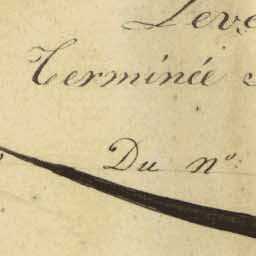 Leve
Terminée
Du nº